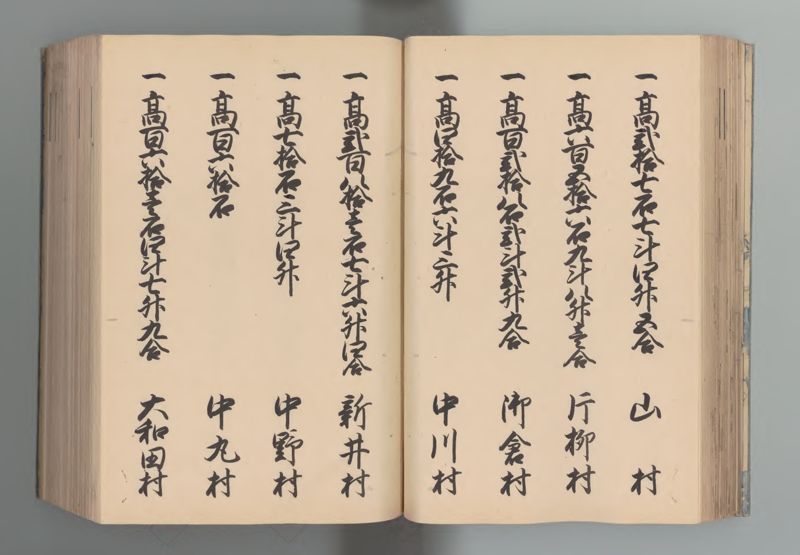 一 高弐拾七石七斗四升五合 山村
一 高六百五拾六石九斗八升壱合 片柳村
一 高百弐拾八石弐斗弐升九合 御倉村
一 高四拾九石六斗三升 中川村
一 高弐百八拾壱石七斗六升四合 新井村
一 高七拾石三斗四升 中野村
一 高百六拾石 中丸村
一 高百六拾壱石四斗七升九合 大和田村